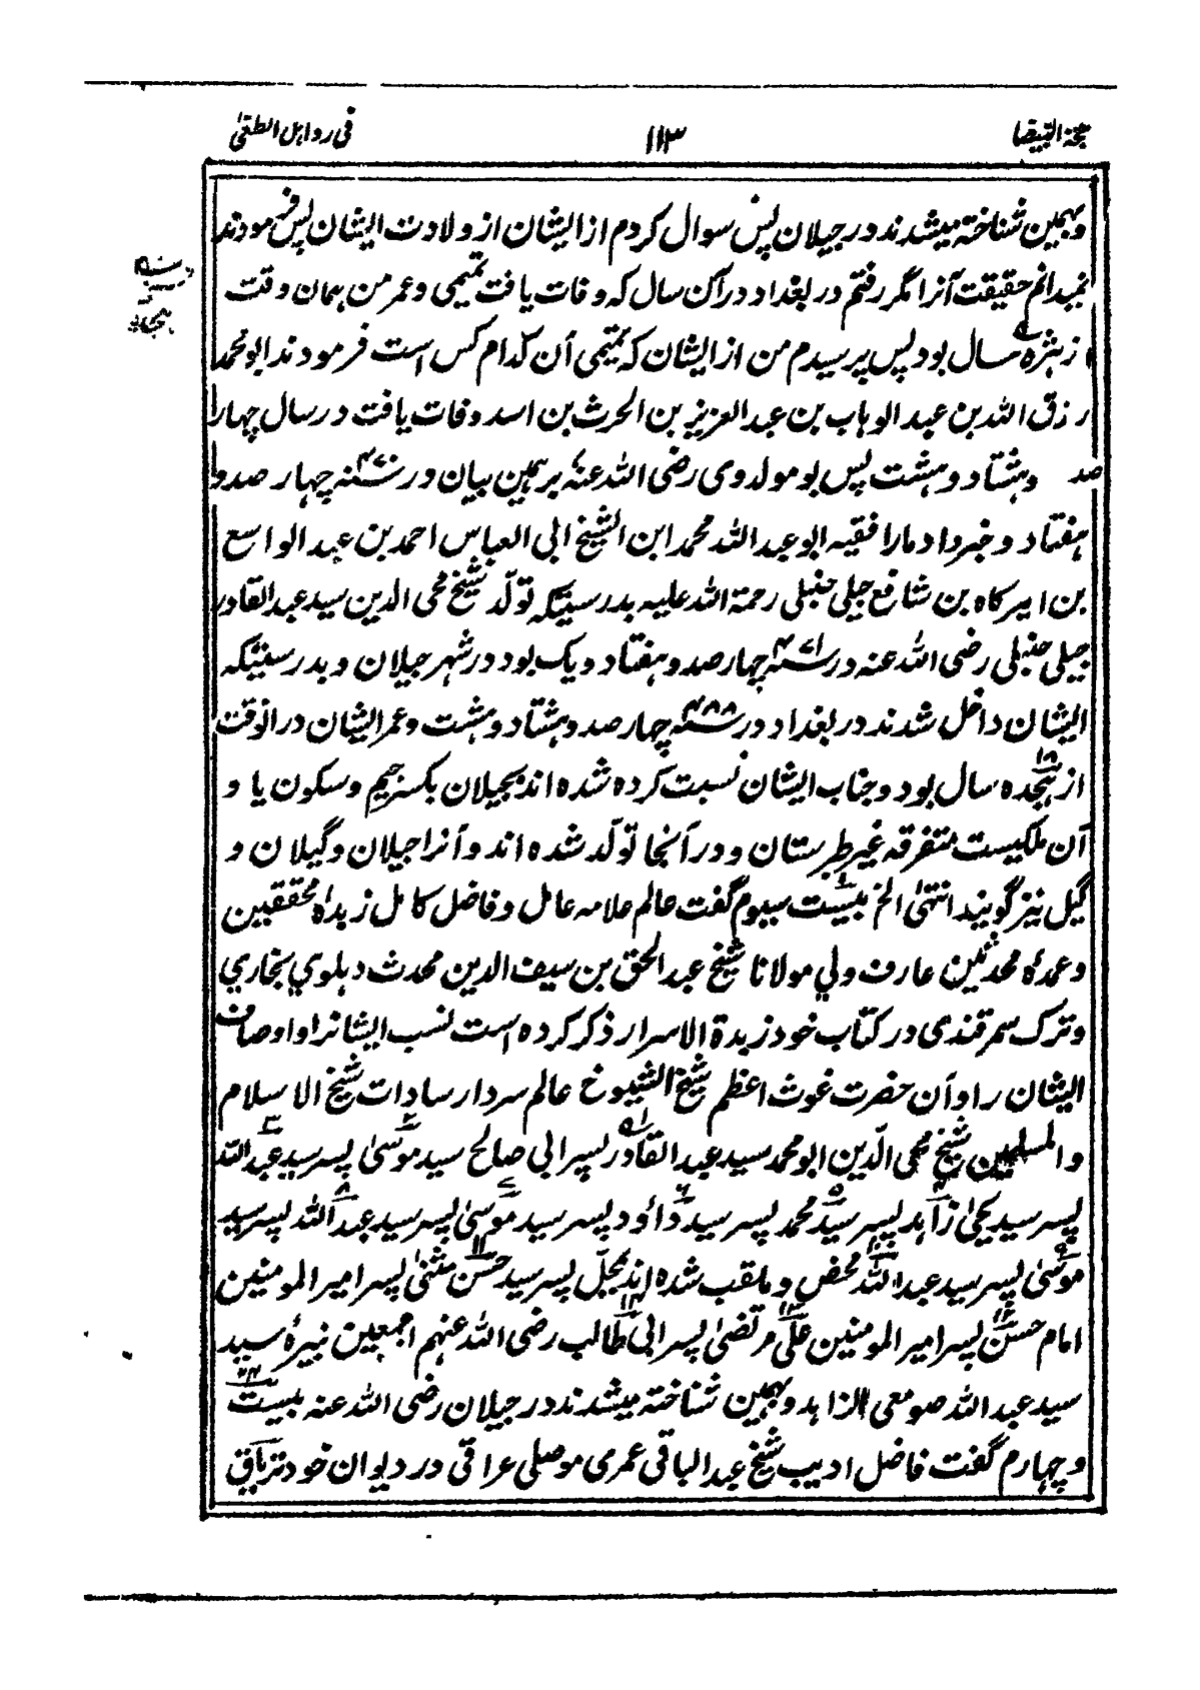 حجة البیضا ۱۱۳ فی رد اہل الطغی
وبہمین شناختہ میشدند در جیلان پس سوال کردم از ایشان از ولادت ایشان پس فرمودند
نمیدانم حقیقت آنرا مگر رفتم در بغداد در آن سال کہ وفات یافت تمیمی وعمر من ہمان وقت
از ہژدہ سال بود پس پرسیدم من از ایشان کہ تمیمی آن کدام کس است فرمودند ابو محمد
رزق اللہ بن عبد الوہاب بن عبد العزیز بن الحرث بن اسد وفات یافت در سال چہار
صد وہشتاد وہشت پس بو مولد وی رضی اللہ عنہ برہمین بیان در سنہ ۴۷۰ چہار صد و
ہفتاد وخبر داد مارا فقیہ ابو عبد اللہ محمد ابن الشیخ ابی العباس احمد بن عبد الواسع
بن امیرکاہ بن شافع جیلی حنبلی رحمۃ اللہ علیہ بدرستیکہ تولّد شیخ محی الدین سید عبد القادر
جیلی حنبلی رضی اللہ عنہ در سنہ ۴۷۱ چہار صد وہفتاد ویک بود در شہر جیلان وبدرستیکہ
ایشان داخل شدند در بغداد در سنہ ۴۸۸ چہار صد وہشتاد وہشت وعمر ایشان در انوقت
از ہجدہ ۱۸ سال بود وجناب ایشان نسبت کردہ شدہ اند بجیلان بکسر جیم وسکون یا و
آن ملکیست متفرقہ غیر طبرستان ودر آنجا تولّد شدہ اند وآنرا جیلان وگیلان و
گیل نیز گویند انتہی الخ بیست سیوم گفت عالم علامہ عامل وفاضل کامل زبدہٴ محققین
وعمدہٴ محدثین عارف ولی مولانا شیخ عبد الحق بن سیف الدین محدث دہلوی بخاری
وترک سمرقندی در کتاب خود زبدۃ الاسرار ذکر کردہ است نسب ایشانرا واوصاف
ایشان را وآن حضرت غوث اعظم شیخ الشیوخ عالم سردار سادات شیخ الاسلام
والمسلمین شیخ محی الدّین ابو محمد سید عبد القادر ۱ پسر ابی صالح سید موسیٰ ۲ پسر سید عبد اللہ ۳
پسر سید یحیٰ زاہد ۴ پسر سید محمد ۵ پسر سید داؤد ۶ پسر سید موسیٰ ۷ پسر سید عبد اللہ ۸ پسر سید
موسٰی ۹ پسر سید عبد اللہ ۱۰ محض وملقب شدہ اند بمجلّ پسر سید حسن ۱۱ مثنیٰ پسر امیر المومنین
امام حسن ۱۲ پسر امیر المومنین علی ۱۳ مرتضیٰ پسر ابی طالب ۱۴ رضی اللہ عنہم اجمعین نبیرہٴ سید
سید عبد اللہ صومعی الزاہد وبہمین شناختہ میشدند در جیلان رضی اللہ عنہ بیست ۲۴
وچہارم گفت فاضل ادیب شیخ عبد الباقی عمری موصلی عراقی در دیوان خود تریاق